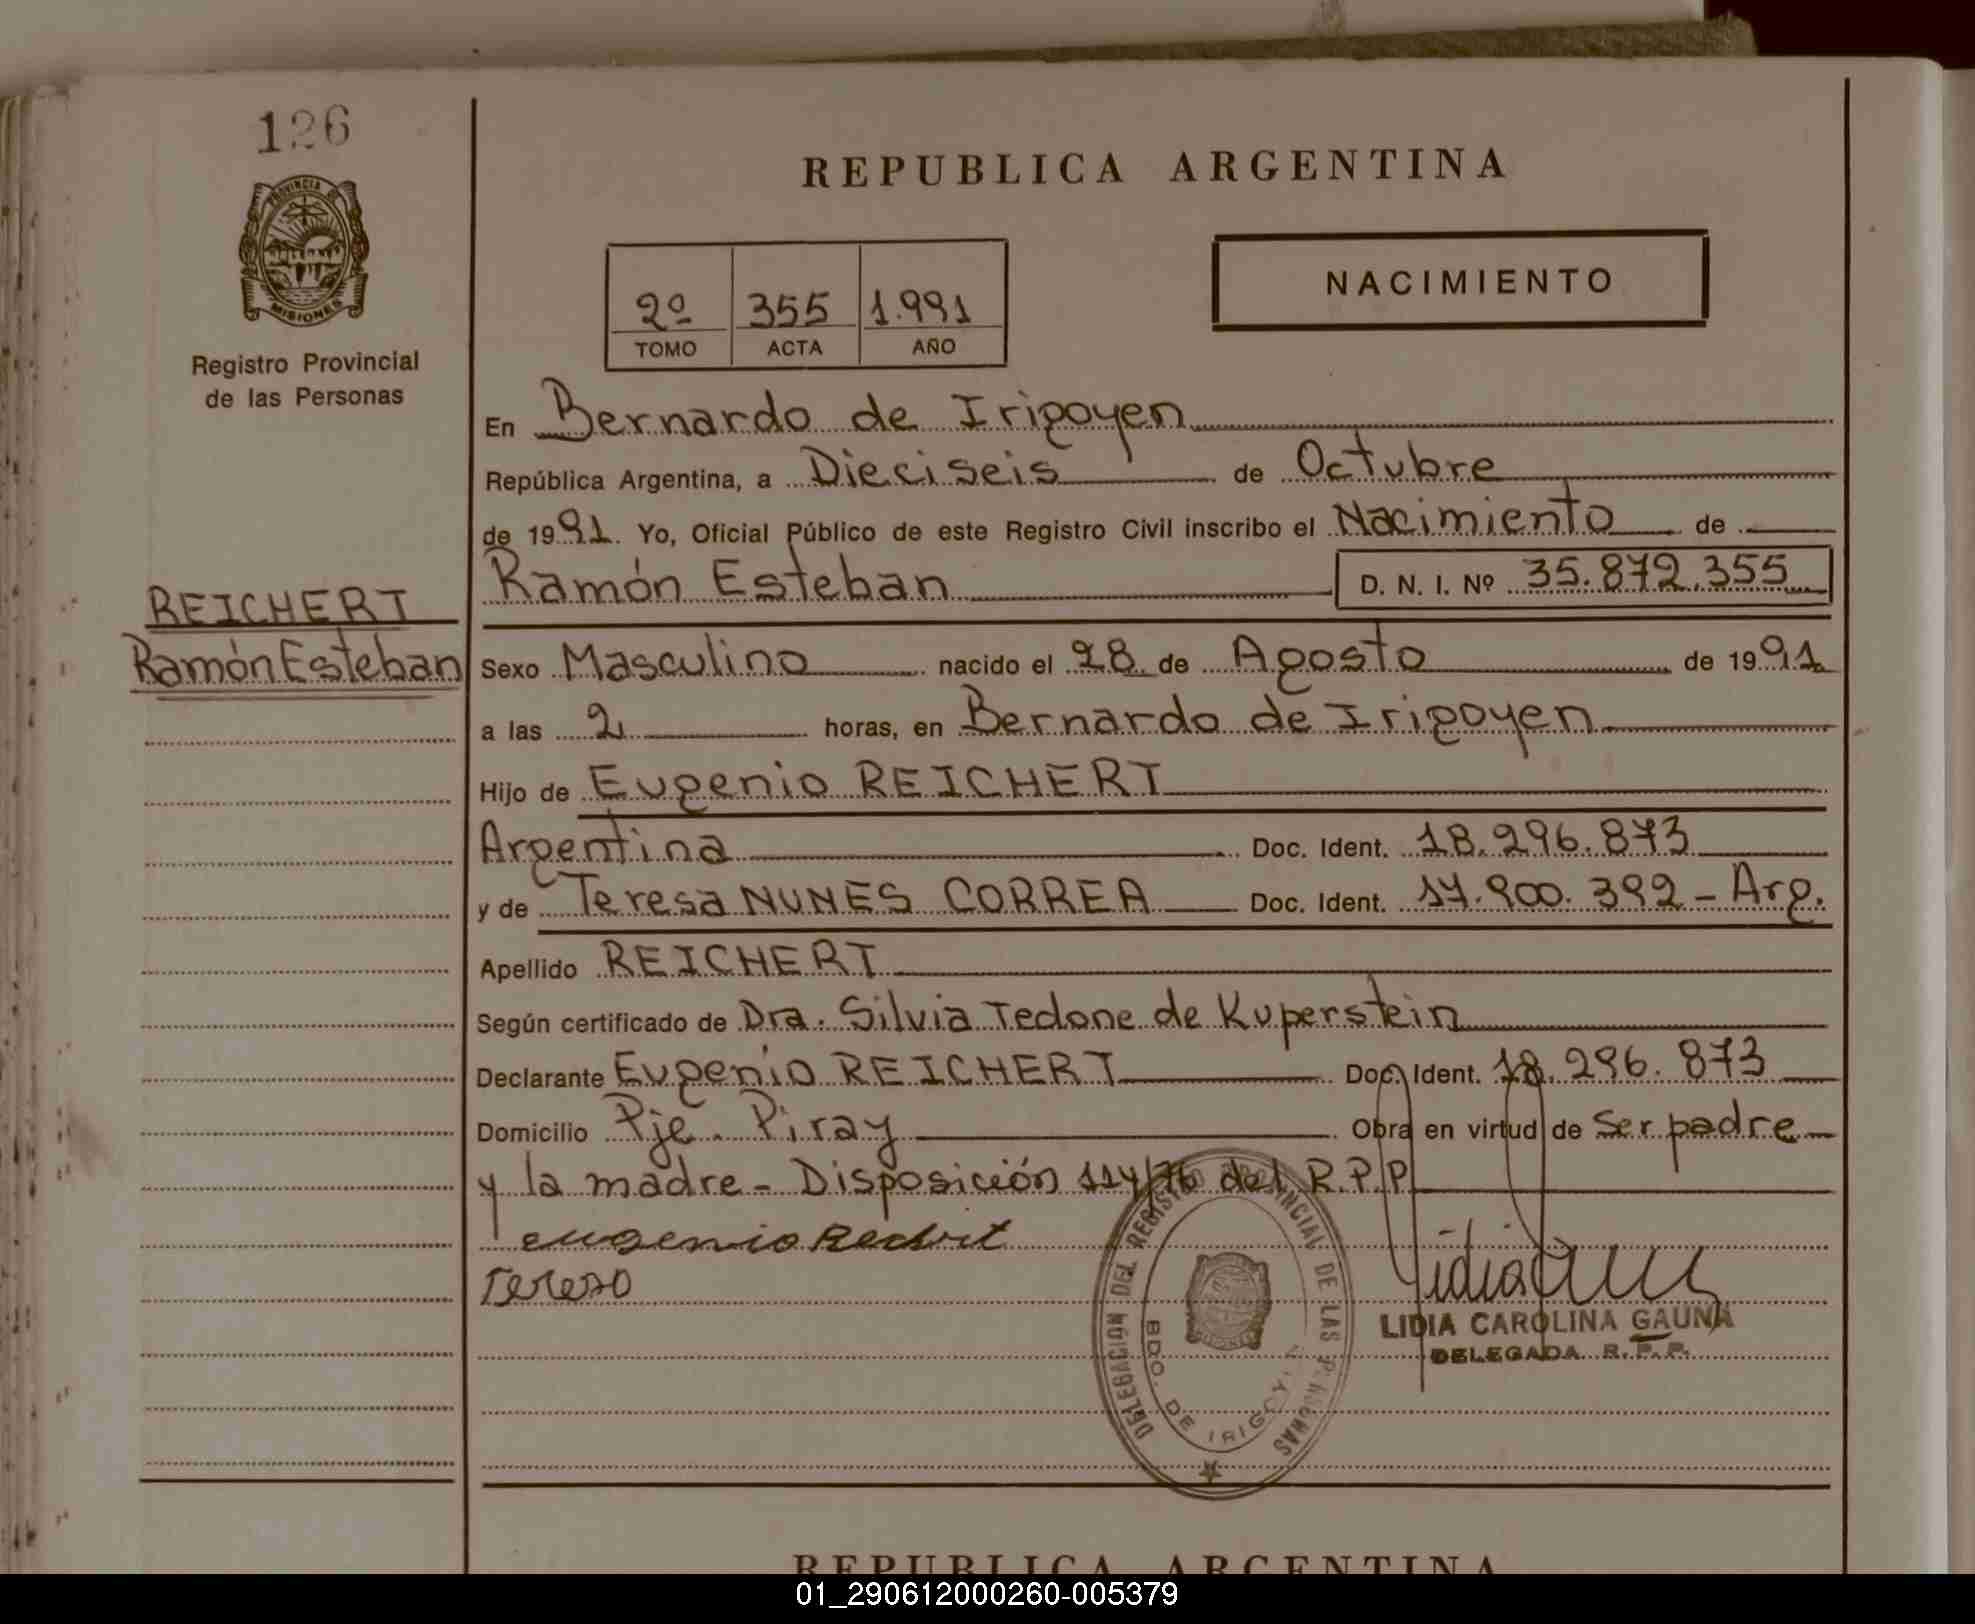 126
PROVINCIA DE
MISIONES
Registro Provincial
de las Personas
REPUBLICA ARGENTINA
NACIMIENTO
2º 355 1.991
TOMO ACTA AÑO
En Bernardo de Irigoyen
República Argentina, a Dieciseis de Octubre
de 1991. Yo, Oficial Público de este Registro Civil inscribo el Nacimiento de
REICHERT
Ramón Esteban
Ramón Esteban D. N. I. Nº 35.872.355
Sexo Masculino nacido el 28 de Agosto de 1991
a las 2 horas, en Bernardo de Irigoyen
Hijo de Eugenio REICHERT
Argentina Doc. Ident. 18.296.873
y de Teresa NUNES CORREA Doc. Ident. 17.900.392 - Arg.
Apellido REICHERT
Según certificado de Dra. Silvia Tedone de Kuperstein
Declarante Eugenio REICHERT Doc. Ident. 18.296.873
Domicilio Pje. Piray Obra en virtud de ser padre
y la madre - Disposición 114/76 del R.P.P.
eugenio
Tereso
DELEGACION DEL REGISTRO PROVINCIAL DE LAS PERSONAS
BDO. DE IRIGOYEN
LIDIA CAROLINA GAUNA
DELEGADA R.P.P.
REPUBLICA ARGENTINA
01_290612000260-005379